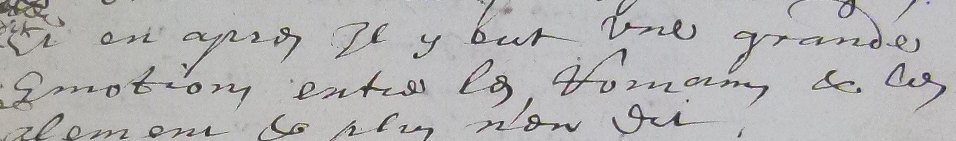 Et en apres Il y eut vne grande
Emotion entre les Romains & les
alement & plus n'en dit